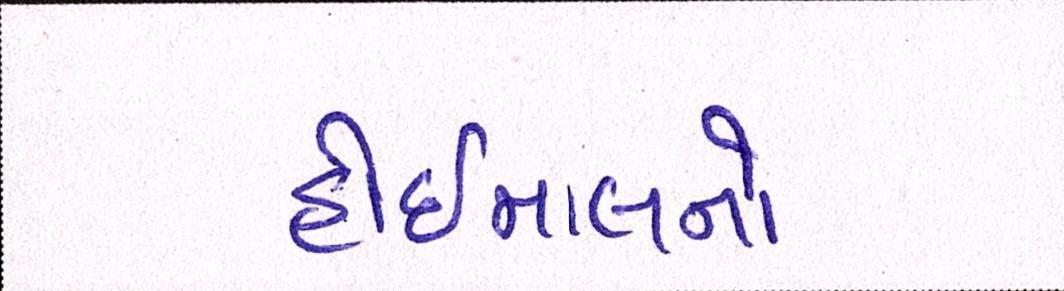 હોઈમાલનો